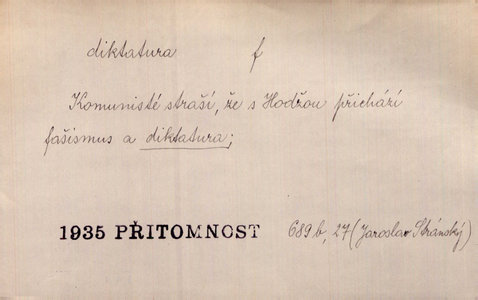 diktatura f
Komunisté straší, že s Hodžou přichází
fašismus a diktatura;
1935 PŘITOMNOST 689b, 27 (Jaroslav Stránský)